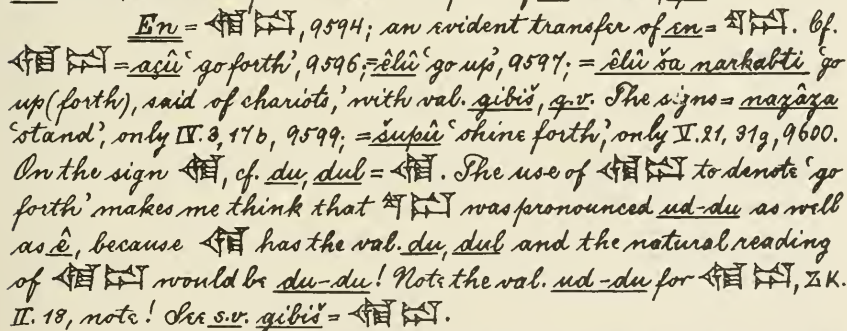 En = 𒇯𒁺, 9594; an evident transfer of en = 𒌓𒁺. Cf.
𒇯𒁺 = açû 'go forth', 9596; = êlû 'go up', 9597; = êlû ša narkabti 'go
up (forth), said of chariots,' with val. gibiš, q.v. The signs = nazâza
'stand', only IV. 3, 17b, 9599; = šupû 'shine forth', only V. 21, 31g, 9600.
On the sign 𒇯, cf. du, dul = 𒇯. The use of 𒇯𒁺 to denote 'go
forth' makes me think that 𒌓𒁺 was pronounced ud-du as well
as ê, because 𒇯 has the val. du, dul and the natural reading
of 𒇯𒁺 would be du-du! Note the val. ud-du for 𒇯𒁺, ZK.
II. 18, note! See s.v. gibiš = 𒇯𒁺.